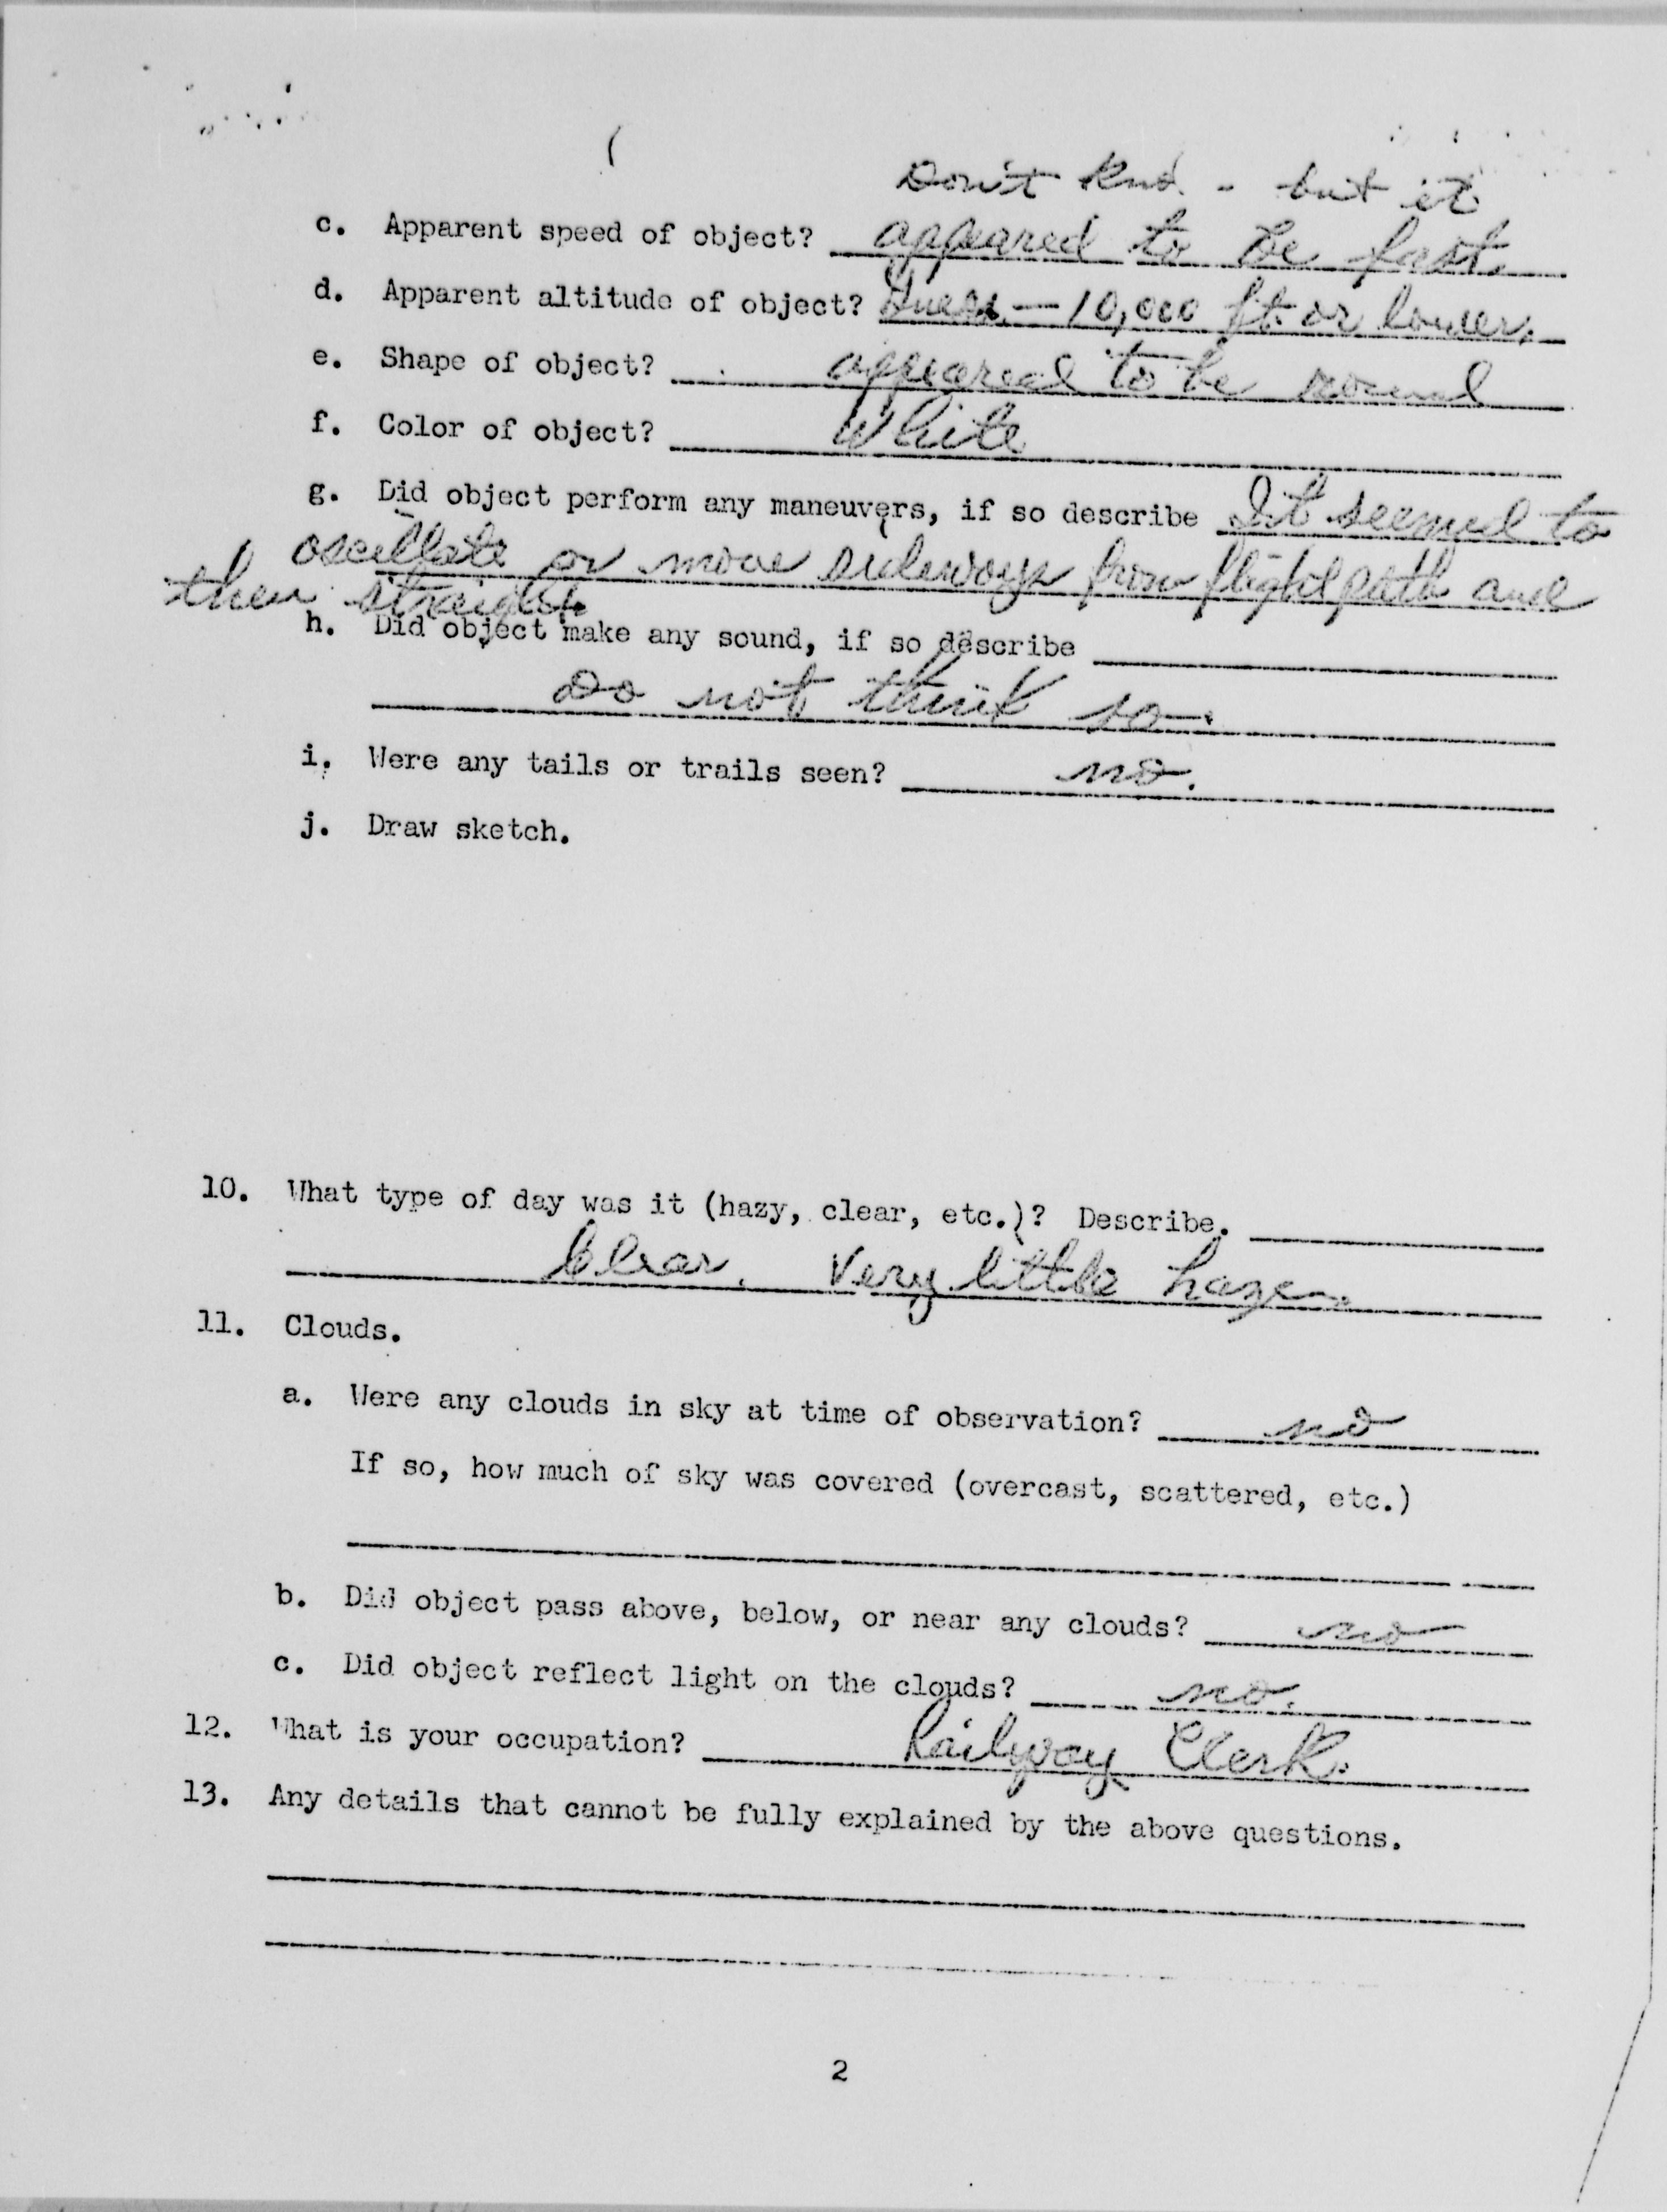 Don't Kno - but it
c. Apparent speed of object? appeared to be fast.
d. Apparent altitude of object? Guess — 10,000 ft. or lower.
e. Shape of object? appeared to be round
f. Color of object? White
g. Did object perform any maneuvers, if so describe It seemed to
oscillate or move sideways from flight path and
then straight.
h. Did object make any sound, if so describe
Do not think so.
i. Were any tails or trails seen? no.
j. Draw sketch.
10. What type of day was it (hazy, clear, etc.)? Describe.
Clear. Very little haze.
11. Clouds.
a. Were any clouds in sky at time of observation? no
If so, how much of sky was covered (overcast, scattered, etc.)
b. Did object pass above, below, or near any clouds? no
c. Did object reflect light on the clouds? no.
12. What is your occupation? Railway Clerk.
13. Any details that cannot be fully explained by the above questions.
2